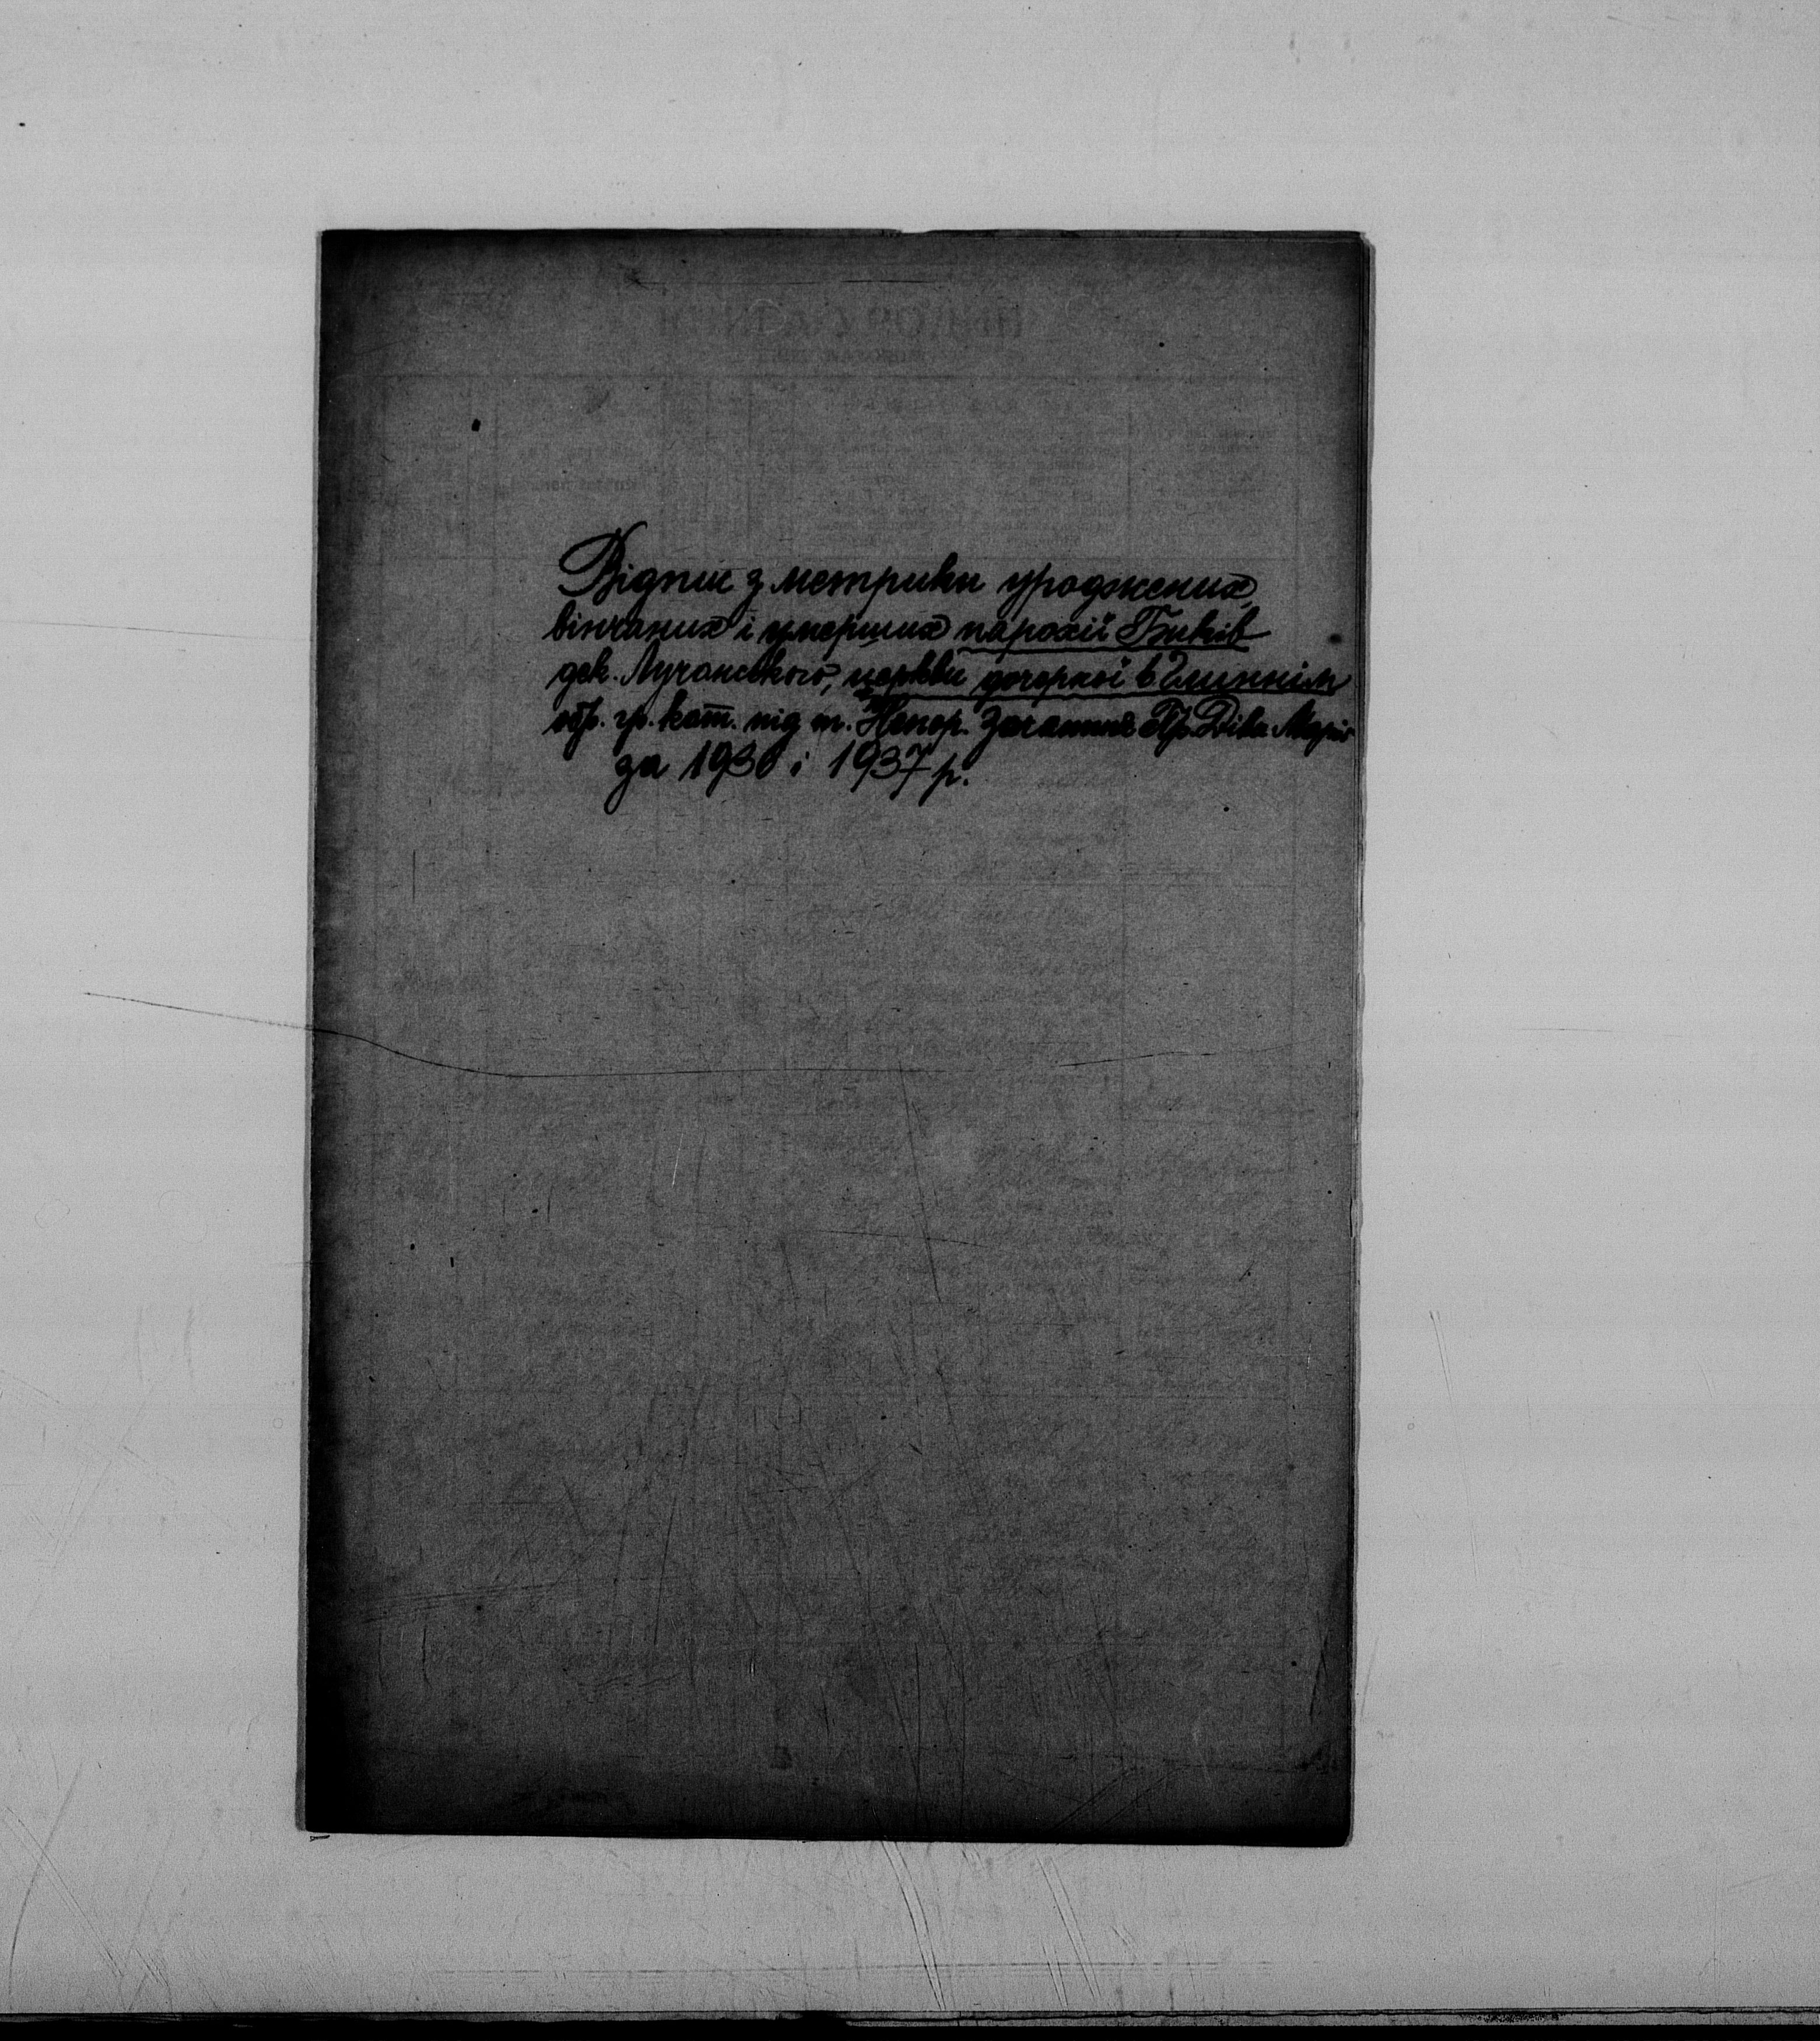 Відпис з метрики уроджених,
вінчаних і умерших парохії Биків
дек. Лучанського, церкви дочерної в Глиннім
обр. гр. кат. під т. Непор. Зачатия Пр. Діви Марії
за 1936 і 1937 р.